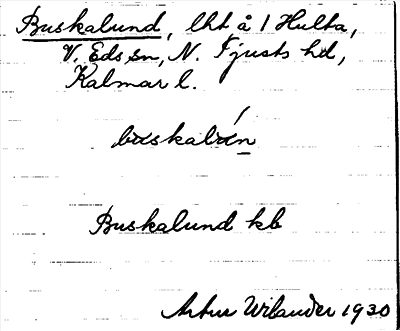 Buskalund, lht å 1 Hulta,
V. Eds sn, N. Tjusts hd,
Kalmar l.
buskalún
Buskalund kb
Artur Wilander 1930